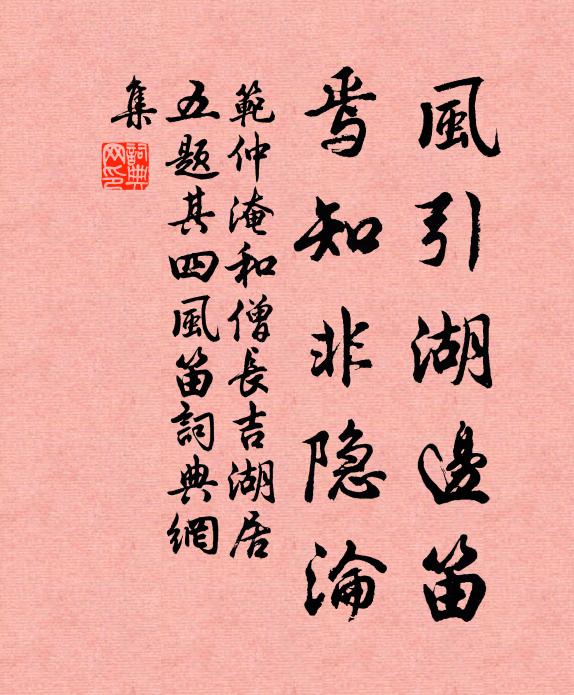 風引湖邊笛
焉知非隐淪
範仲淹和僧長吉湖居
五題其四風笛詞典網
集
詞典網印